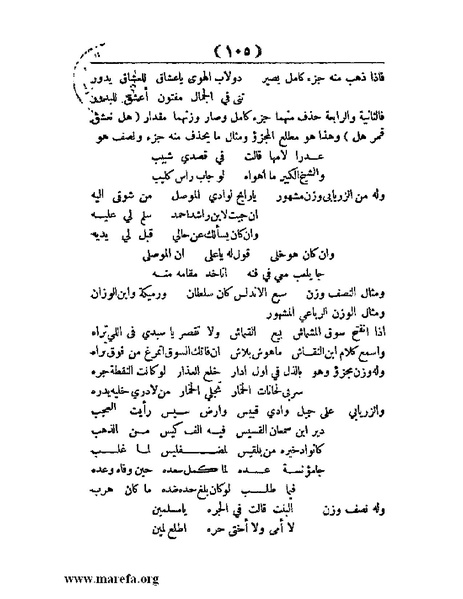 ( ١٠٥ )
فاذا ذهب منه جزء كامل يصير دولاب الهوى ياعشاق للعشاق يدور
تنى في الجمال مفتون أعشق للبدور
فالثانية والرابعة حذف منهما جزء كامل وصار وزنهما مقدار ( هل تعشق
قمر هل ) وهذا هو مطلع المجزؤ ومثال ما يحذف منه جزء ونصف هو
عذرا لامها قالت في قصدي شبيب
والشيخ الكبير ما أهواه لو جاب راس كليب
وله من الزربابى وزن مشهور يارايح لوادي الموصل من شوقى اليه
ان جيت لابن راشد احمد سلم لي عليه
وان كان يسألك عن حالي قبل لي يديه
وان كان هو خلى قول له ياعلى ان الموصلى
جا يلعب معي في فنه اناخد مقامه منه
ومثال النصف وزن سبع الاندلس كان سلطان ورميكة وابن الوزان
ومثال الوزن الرباعي المشهور
اذا انفتح سوق المشماش بيع القماش ولا تقصر يا سيدى فى اللى تراه
واسمع كلام ابن النقاش ماهوش بلاش ان فاتك السوق اتمرغ من فوق تراه
وله وزن مجزؤ وهو بالذل في اول ادار خلع العذار لو كانت النقطة جره
سر بى لحانات الخمار تجلي الخمار من لادرى خليه يدره
والزربابي على جبل وادي قبيس وارض سيس رأيت العجب
دير ابن سمعان القسيس فيه الف كيس من الذهب
كانوا دخيره من بلقيس لمضفليس لما غلب
جامؤنسة عده لما كمل سعده حين وفاه وعده
فيا طلب لو كان بلغ حده ضده ما كان هرب
وله نصف وزن البنت قالت في الجره يامسلمين
لا أمى ولا أختى حره اطلع لمين
www.marefa.org